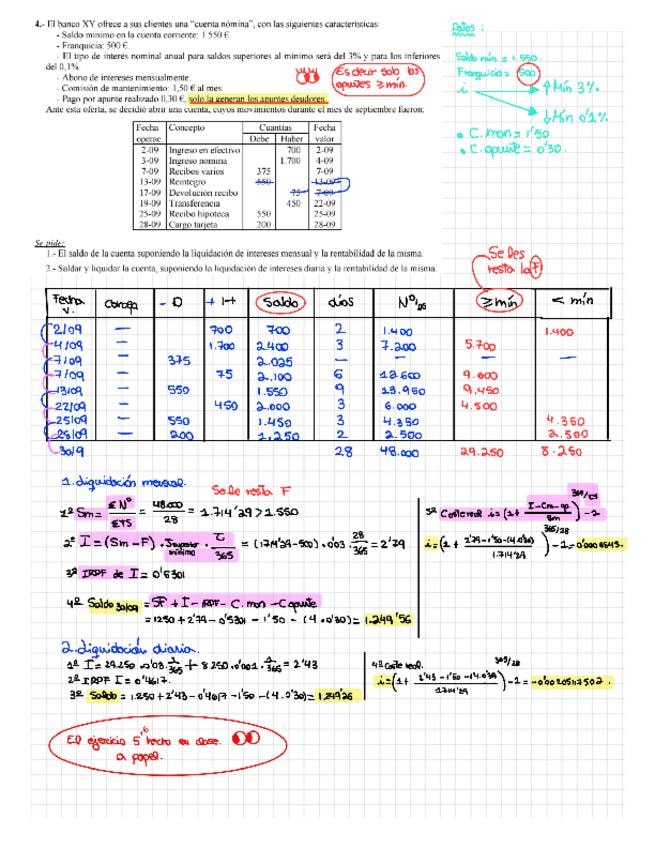 4.- El banco XY ofrece a sus clientes una "cuenta nómina", con las siguientes características:
- Saldo mínimo en la cuenta corriente: 1.550 €.
- Franquicia: 500 €.
- El tipo de interés nominal anual para saldos superiores al mínimo será del 3% y para los inferiores
del 0,1%.
- Abono de intereses mensualmente.
- Comisión de mantenimiento: 1,50 € al mes.
- Pago por apunte realizado 0,30 €, solo la generan los apuntes deudores.
Ante esta oferta, se decidió abrir una cuenta, cuyos movimientos durante el mes de septiembre fueron:
Es decir solo los
apuntes ≥ mín.
Datos:
Saldo mín = 1.550
Franquicia = 500
i
↑ Mín 3%
↓ Mín 0'1%
• C. man = 1'50
• C. apunte = 0'30.
Fecha Concepto Cuantías Fecha
operac. Debe Haber valor
2-09 Ingreso en efectivo 700 2-09
3-09 Ingreso nomina 1.700 4-09
7-09 Recibos varios 375 7-09
13-09 Reintegro 550 13-09
17-09 Devolución recibo 75 7-09
19-09 Transferencia 450 22-09
25-09 Recibo hipoteca 550 25-09
28-09 Cargo tarjeta 200 28-09
Se pide:
1.- El saldo de la cuenta suponiendo la liquidación de intereses mensual y la rentabilidad de la misma.
2.- Saldar y liquidar la cuenta, suponiendo la liquidación de intereses diaria y la rentabilidad de la misma.
Se les
resta la F
Fecha V. - D + H Saldo días Nos ≥ mín < mín
2/09 — 700 700 2 1.400 1.400
4/09 — 1.700 2400 3 7.200 5.700
7/09 — 375 2.025 — — — —
7/09 — 75 2.100 6 12.600 9.600
13/09 — 550 1.550 9 13.950 9.450
22/09 — 450 2.000 3 6.000 4.500
25/09 — 550 1.450 3 4.350 4.350
28/09 — 200 1.250 2 2.500 2.500
30/9 28 48.000 29.250 8.250
1. Liquidación mensual.
Solo resta F
1º Sm = ΣNº = 48.000 / 28 = 1.714'29 > 1.550
2º I = (Sm - F) · Superior mínimo · T / 365 = (1714'29 - 500) · 0'03 · 28 / 365 = 2'79
3º IRPF de I = 0'5301
4º Saldo 30/09 = SF + I - IRPF - C. man - C apunte
= 1250 + 2'79 - 0'5301 - 1'50 - (4 · 0'30) = 1.249'56
5º Coste real i = (1 + I - Cm - ap / Sm) - 1
i = (1 + 2'79 - 1'50 - (4·0'30) / 1.714'29) 365/28 - 1 = 0'0006543.
2. Liquidación diaria.
1º I = 29.250 · 0'03 · 1/365 + 8.250 · 0'001 · 1/365 = 2'43
2º IRPF I = 0'4617.
3º Saldo = 1.250 + 2'43 - 0'4617 - 1'50 - (4 · 0'30) =
4º Coste real.
i = (1 + 2'43 - 1'50 - (4·0'30) / 1714'29) 365/28 - 1 =
El ejercicio 5 y 6 hecho en clase.
a papel.